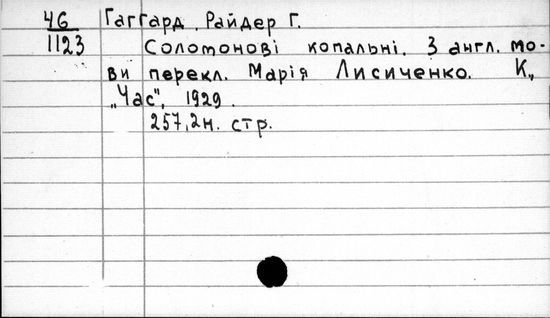 46 Гаггард, Райдер Г.
1123 Соломонові копальні. З англ. мо-
ви перекл. Марія Лисиченко. К.,
„Час", 1929.
257, 2н. стр.